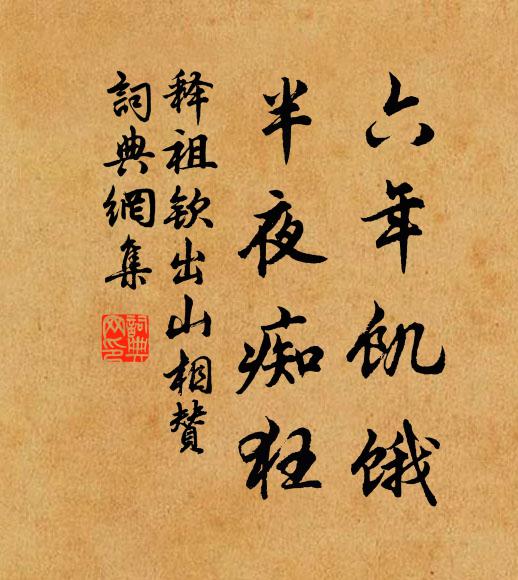 六年飢餓
半夜痴狂
释祖钦出山相赞
詞典網集
詞典網印